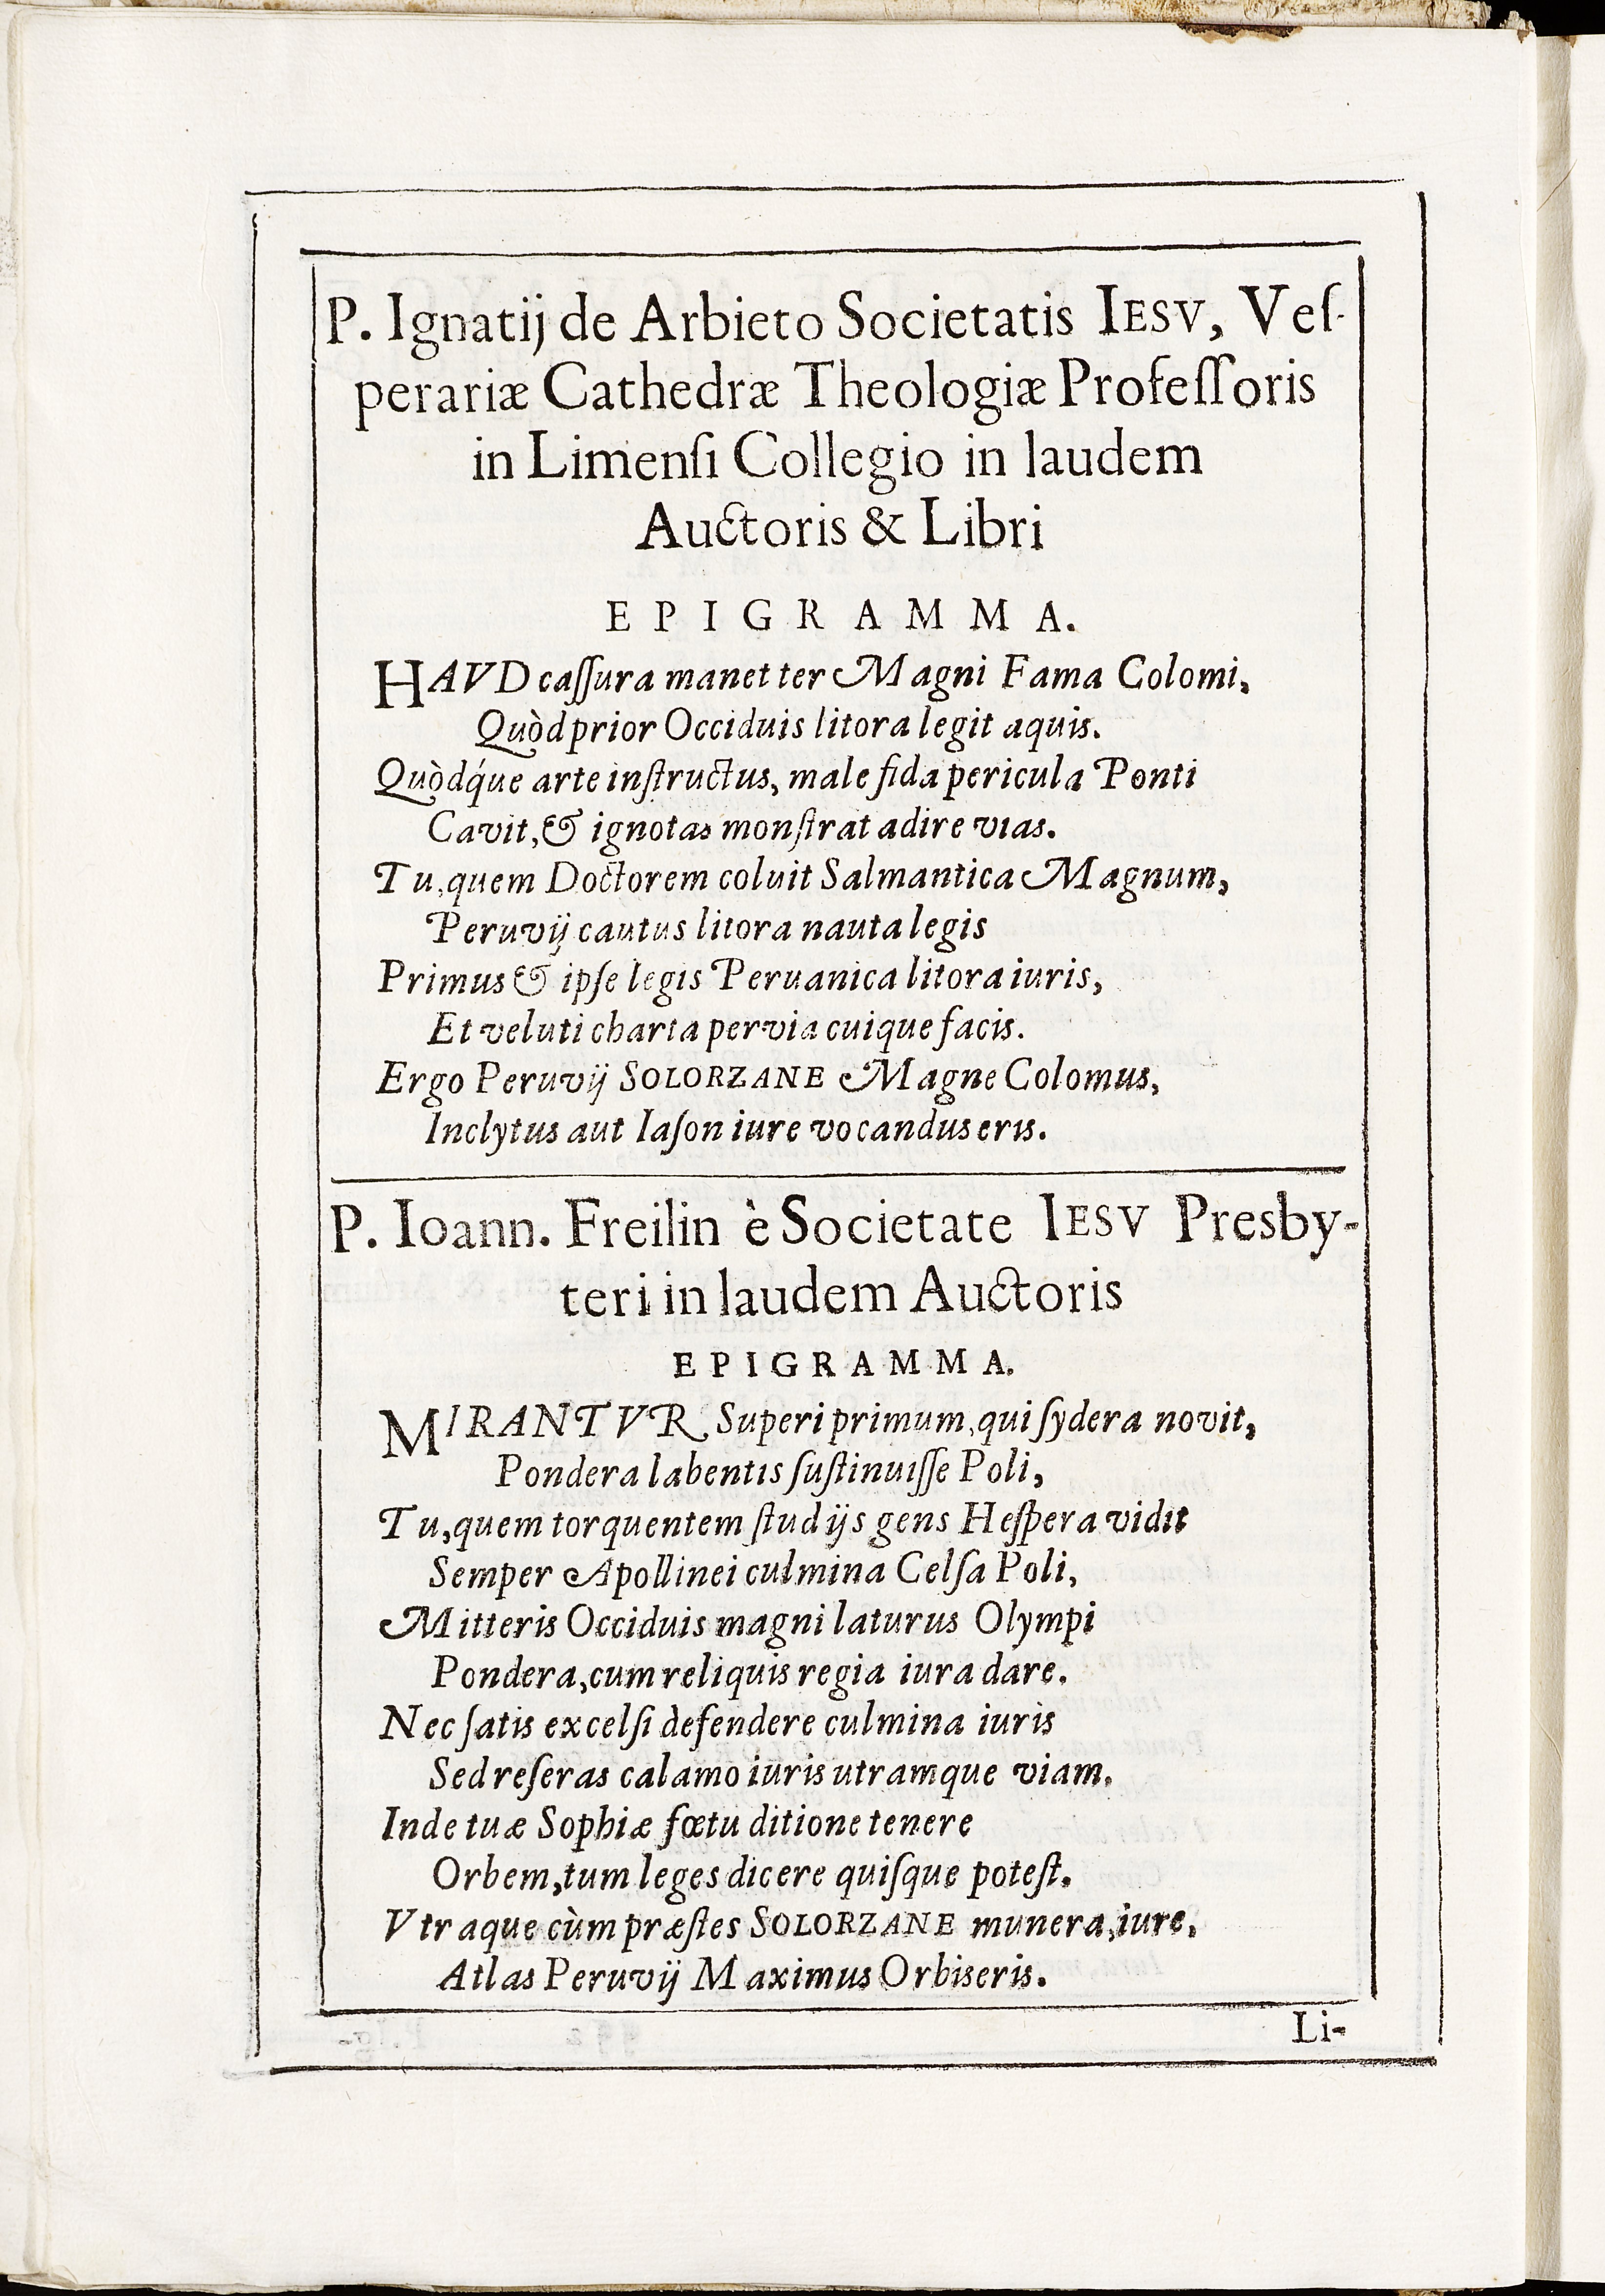 P. Ignatij de Arbieto Societatis IESV, Veſ-
perariæ Cathedræ Theologiæ Profeſſoris
in Limenſi Collegio in laudem
Auctoris & Libri
EPIGRAMMA.
HAVD caſſura manet ter Magni Fama Colomi,
Quòd prior Occiduis litora legit aquis.
Quòdq́ue arte inſtructus, male fida pericula Ponti
Cavit, & ignotas monſtrat adire vias.
Tu, quem Doctorem coluit Salmantica Magnum,
Peruvij cautus litora nauta legis
Primus & ipſe legis Peruanica litora iuris,
Et veluti charta pervia cuique facis.
Ergo Peruvij SOLORZANE Magne Colomus,
Inclytus aut Iaſon iure vocandus eris.
P. Ioann. Freilin è Societate IESV Presby-
teri in laudem Auctoris
EPIGRAMMA.
MIRANTVR Superi primum, qui ſydera novit,
Pondera labentis ſuſtinuiſſe Poli,
Tu, quem torquentem ſtudijs gens Heſpera vidit
Semper Apollinei culmina Celſa Poli,
Mitteris Occiduis magni laturus Olympi
Pondera, cum reliquis regia iura dare.
Nec ſatis excelſi defendere culmina iuris
Sed reſeras calamo iuris utramque viam.
Inde tuæ Sophiæ fœtu ditione tenere
Orbem, tum leges dicere quiſque poteſt.
Vtraque cùm præſtes SOLORZANE munera, iure,
Atlas Peruvij Maximus Orbis eris.
Li-